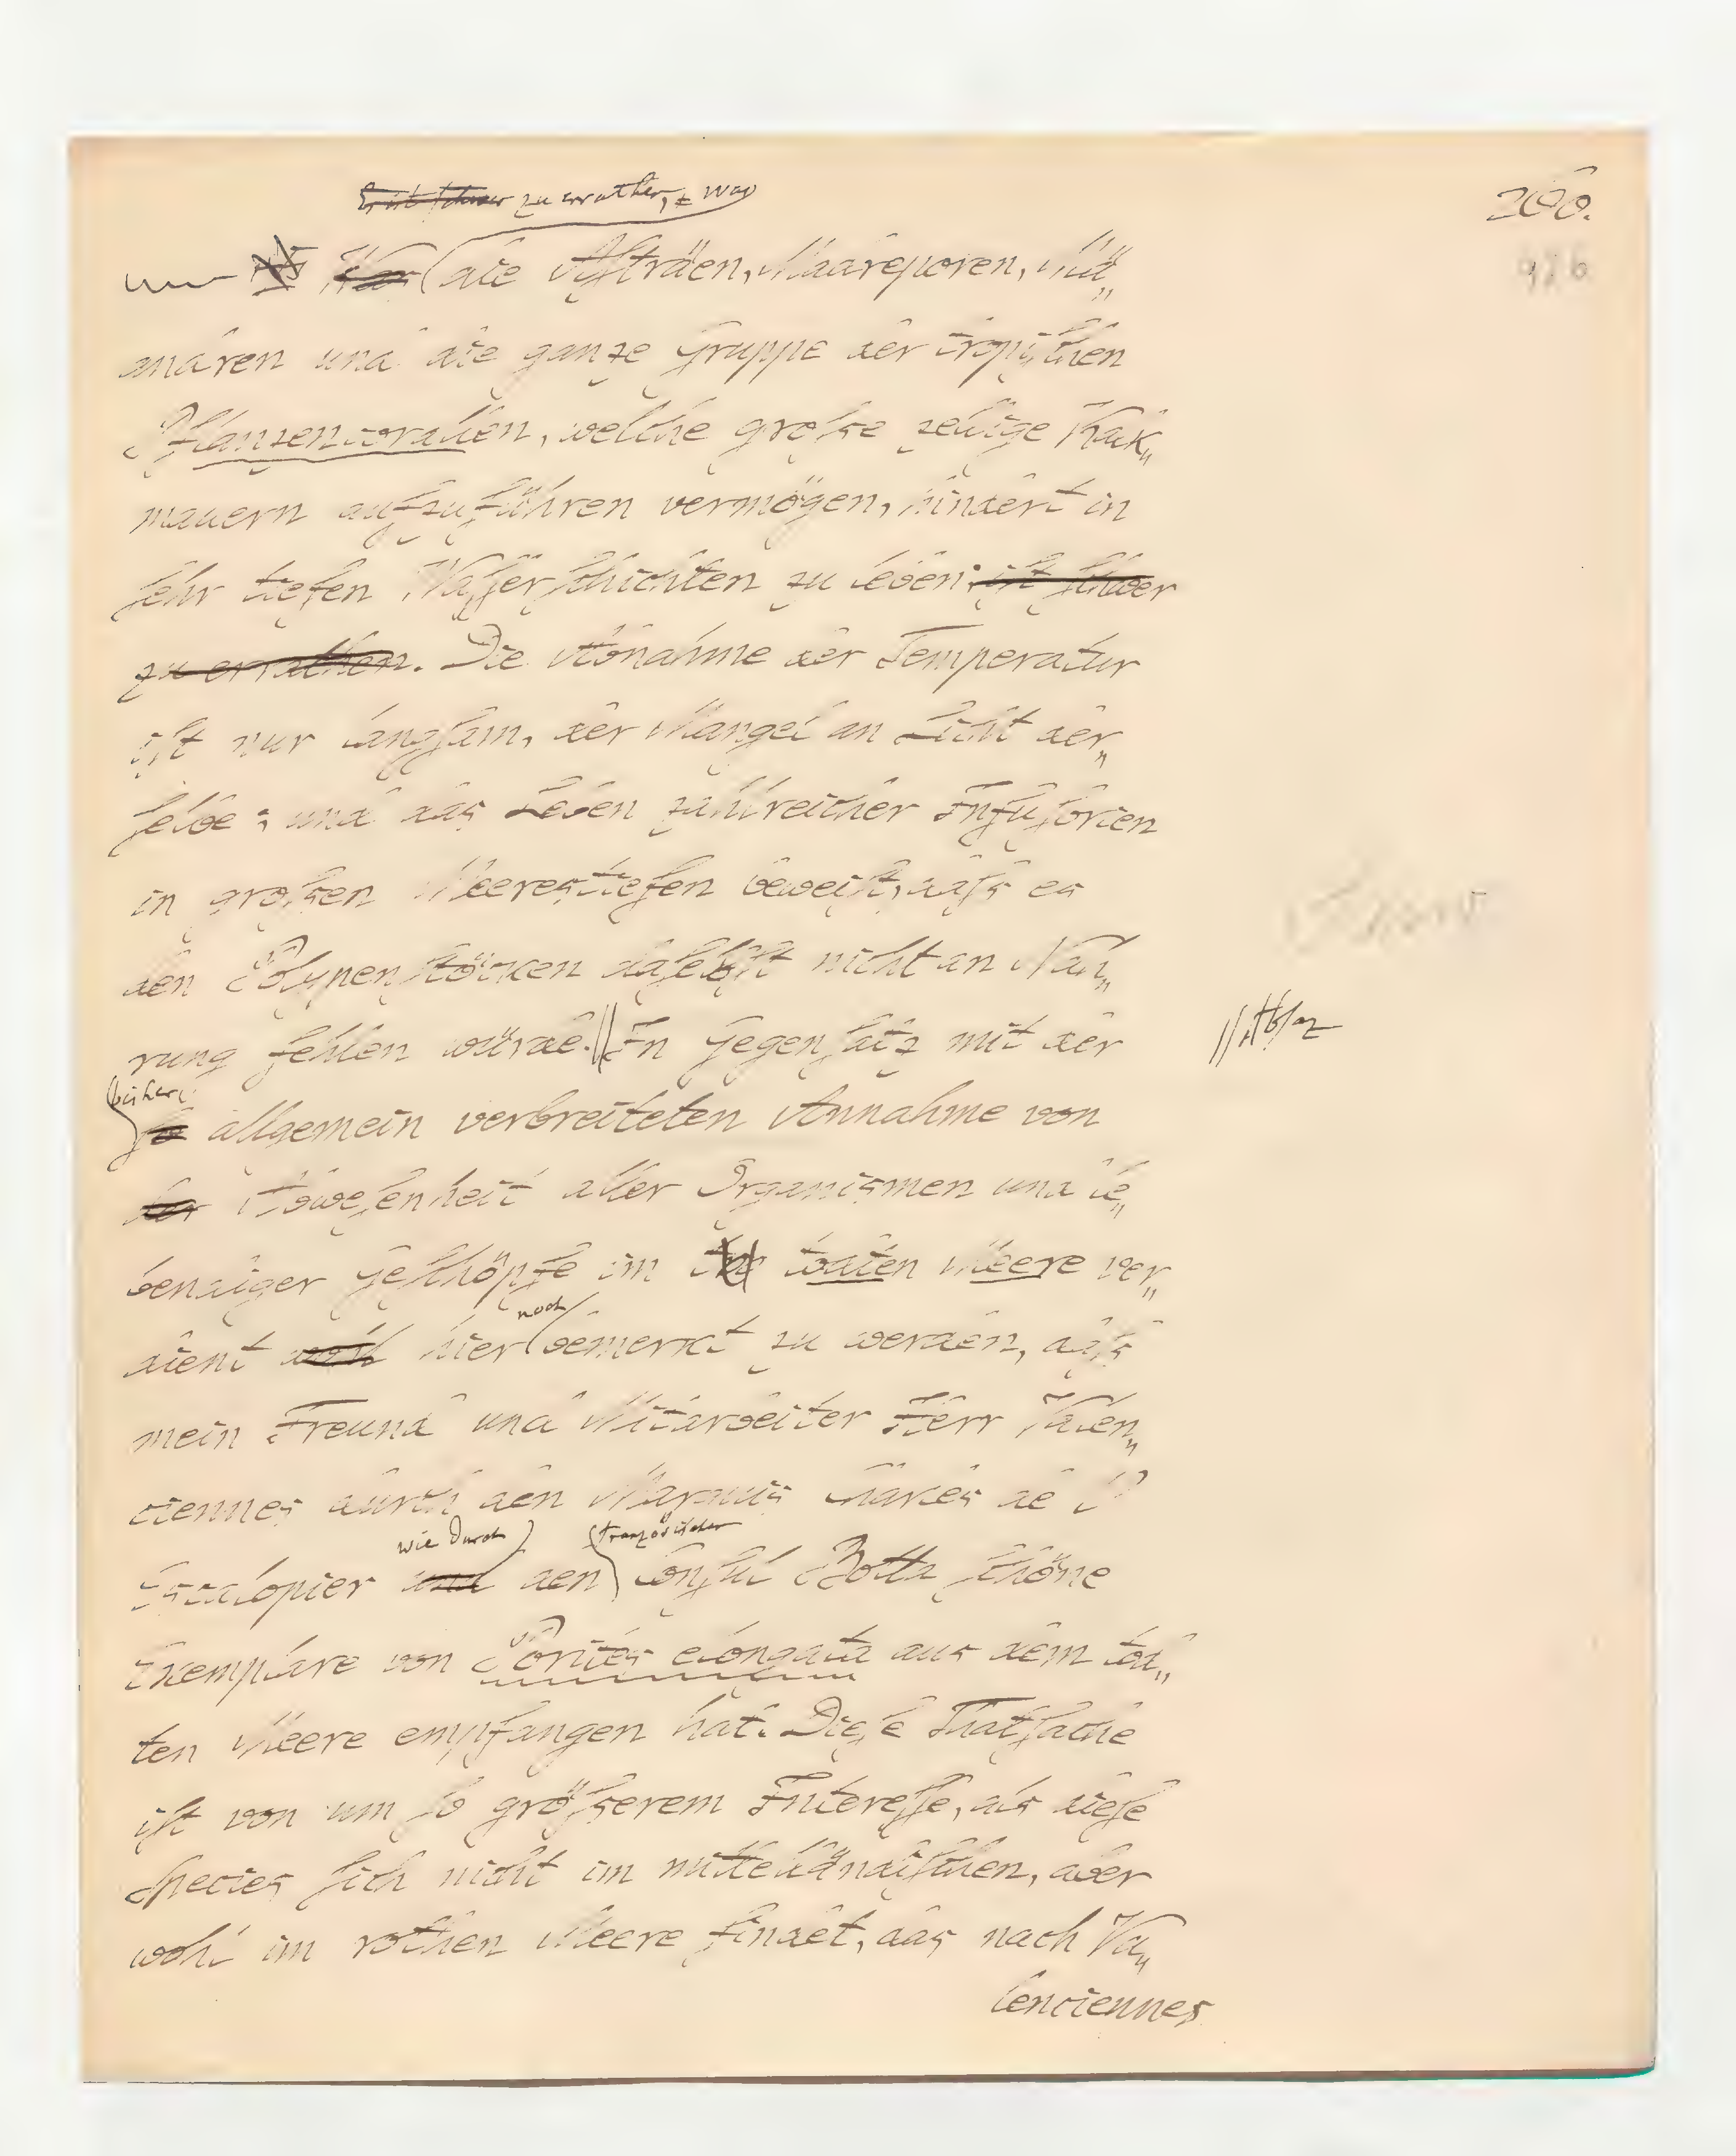 260.
Es ist schwer zu errathen, was
Was die Asträen, Maäreporen, Mä„
andren und die ganze Gruppe der tropischen
Pflanzencorallen, welche große zellige Kalk„
mauern aufzuführen vermögen, hindert in
sehr tiefen Wasserschichten zu leben: ist schwer
zu errathen. Die Abnahme der Temperatur
ist nur langsam, der Mangel an Licht der„
selbe; und das Leben zahlreicher Infusorien
in großen Meerestiefen beweist, daß es
den Polypenstöcken daselbst nicht an Nah„
rung fehlen würde. || In Gegensatz mit der
|| Absaz
bisher
so allgemein verbreiteten Annahme von
der Abwesenheit aller Organismen und le„
bendiger Geschöpfe im todten Meere ver„
noch
dient wohl hier bemerkt zu werden, daß
mein Freund und Mitarbeiter Herr Valen„
ciennes durch den Marquis Charles de l'
wie durch französischen
Escalopier und den Consul Botta schöne
Exemplare von Porites elongata aus dem tod„
ten Meere empfangen hat. Diese Thatsache
ist von um so größerem Interesse, als diese
Species sich nicht im mittelländischen, aber
wohl im rothen Meere findet, das nach Va„
lenciennes